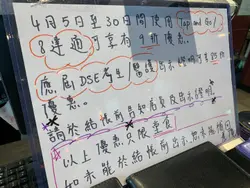 4月5日至30日間使用 Tap and Go/
8達通可享有9折優惠。
應屆DSE考生
優惠。
請於結帳前告知店員及出示證明
以上優惠只限堂食
如未能於結帳前出示